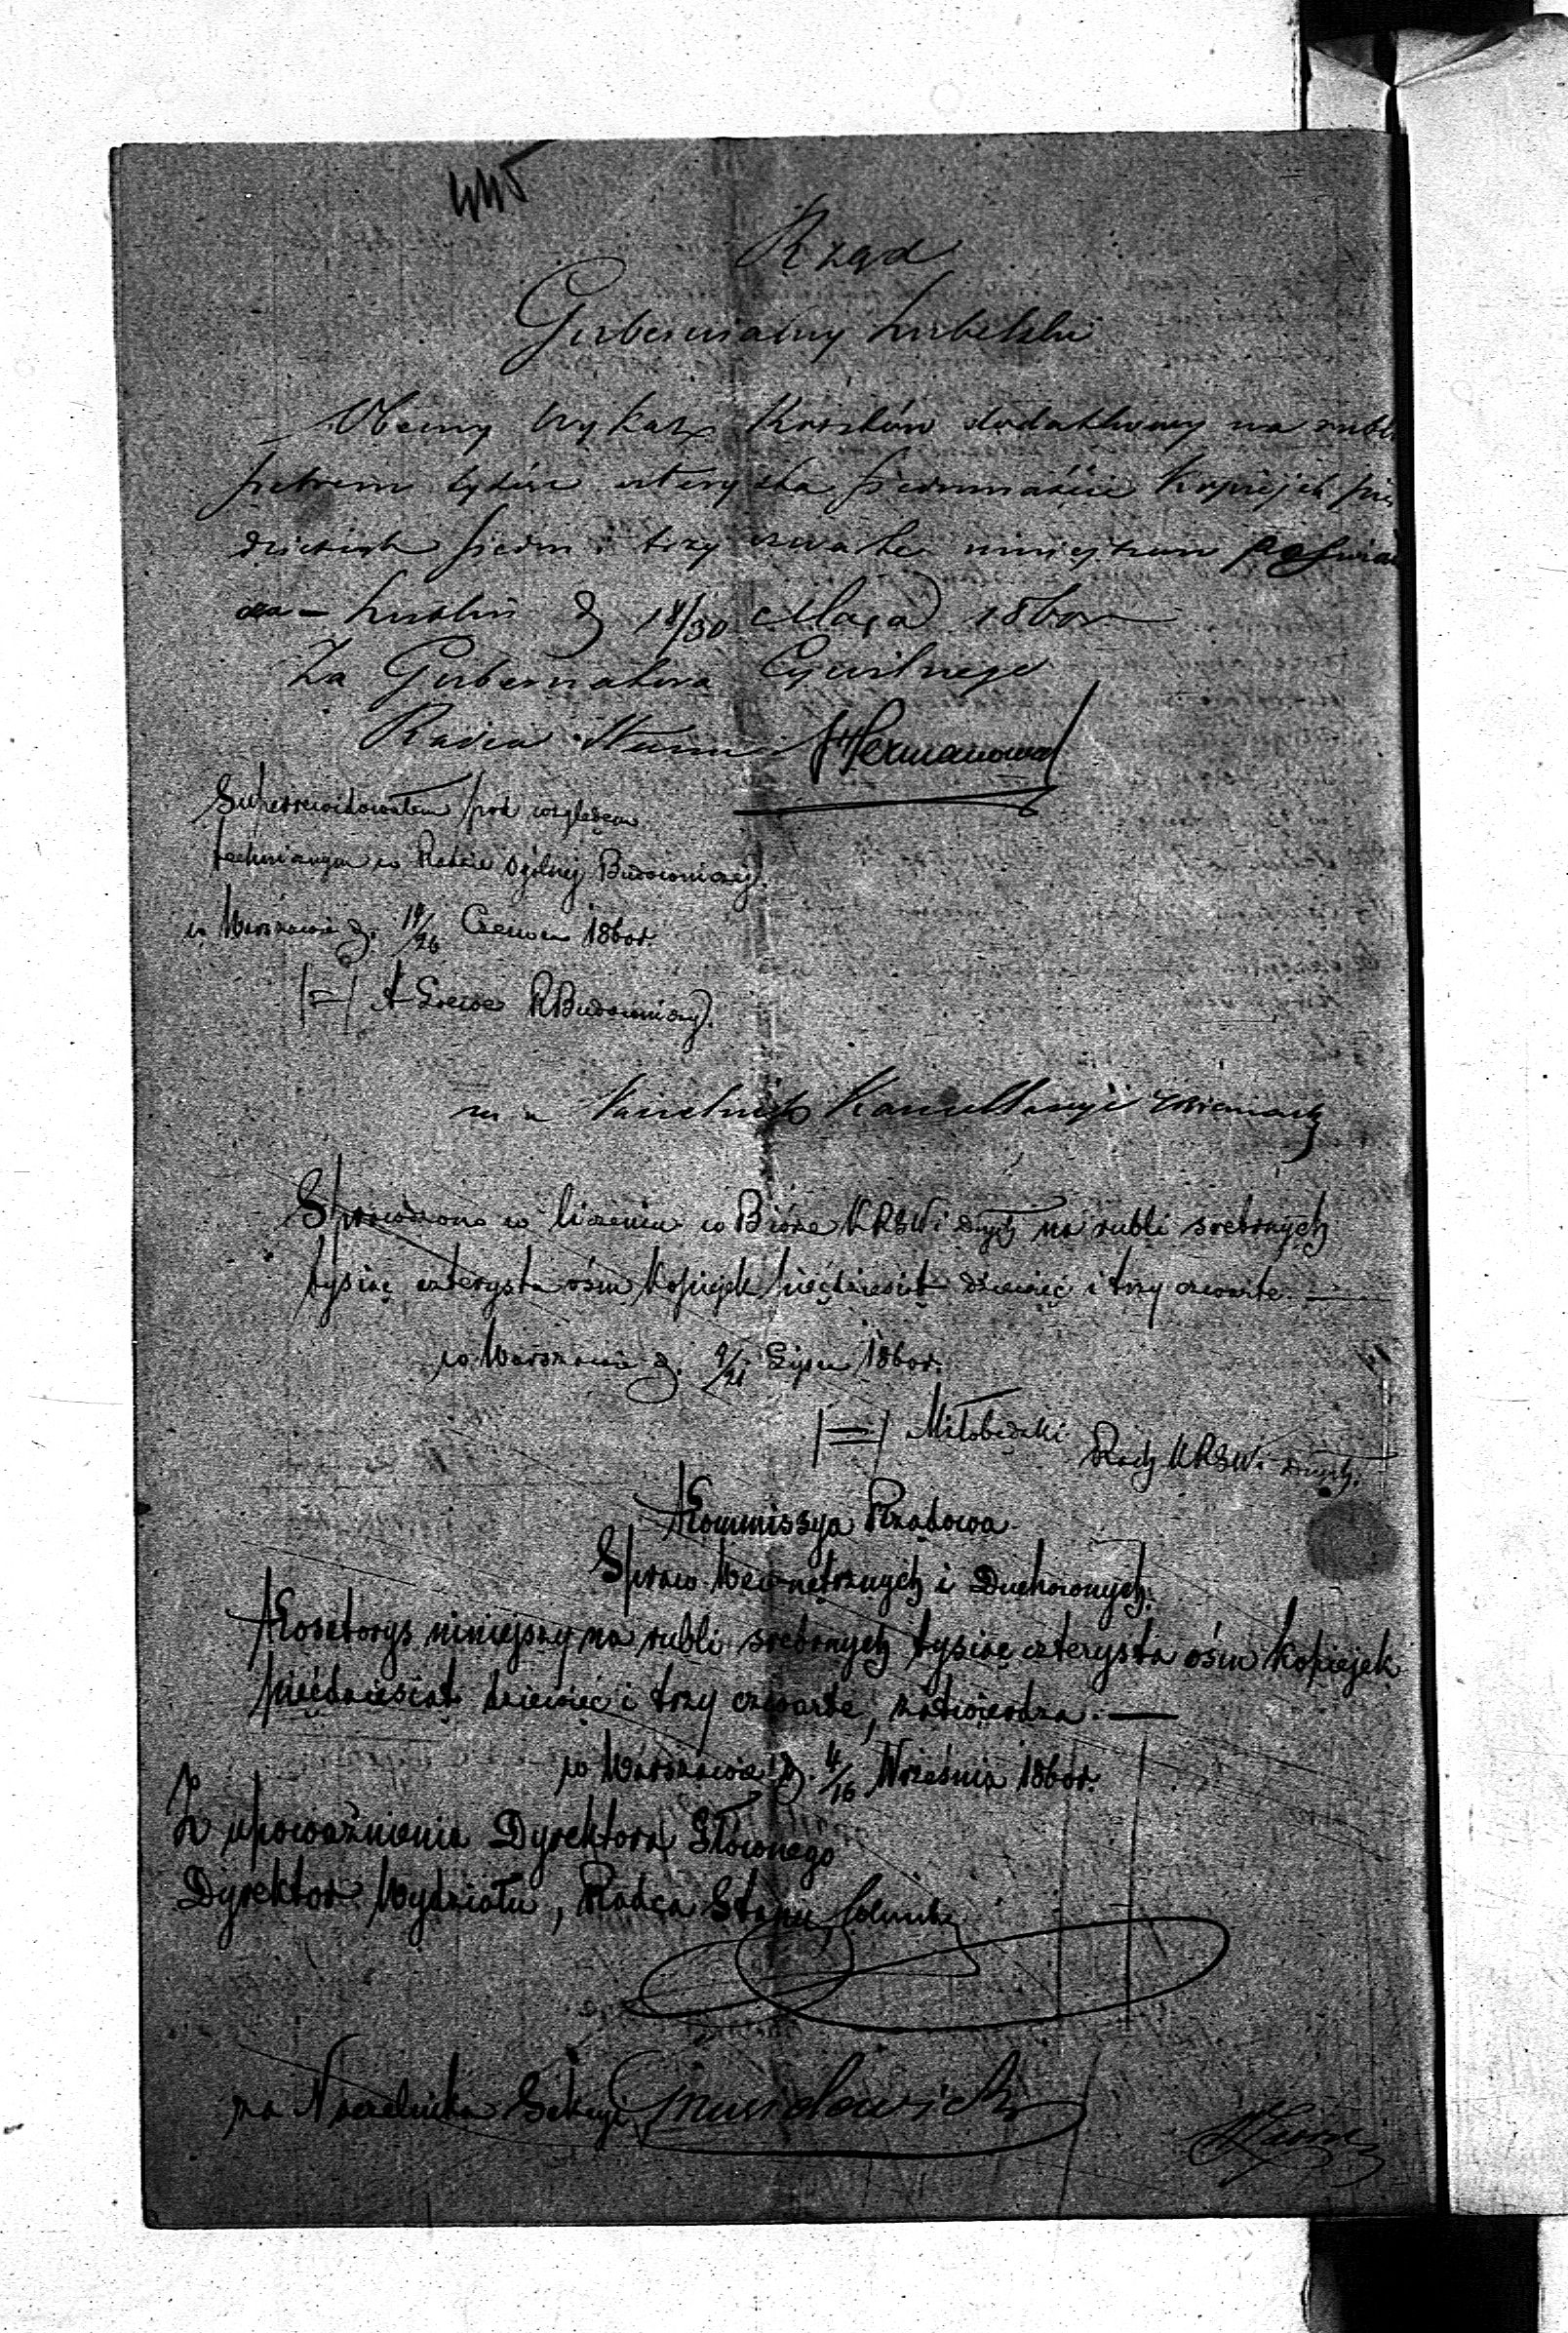 Rząd
Gubernialny Lubelski
Obecny Wykaz Kosztów dodatkowy na rubli
srebrem tysiąc czterysta siedmnaście kopiejek pię
dziesiąt siedm i trzy czwarte niniejszem poświad
cza – Lublin d 18/30 Maja 1860 r
Za Gubernatora Cywilnego
Radca Hermanowski
Superrewidowałem pod względem
technicznym w Radzie Ogólnej Budowniczej.
w Warszawie d. 14/26 Czerwca 1860 r.
/=/ A Loewe R Budowniczy.
Naczelnik Kancellaryi
Sprawdzono w liczeniu w Biórze KRSW i Duch na rubli srebrnych
tysiąc czterysta ośm kopiejek pięćdziesiąt dziewięć i trzy czwarte. —
w Warszawie d. 9/21 Lipca 1860 r.
/=/ Miłobędzki Radz KRSW i Duch.
Kommissya Rządowa
Spraw Wewnętrznych i Duchownych.
Kosztorys niniejszy na rubli srebrnych tysiąc czterysta ośm kopiejek
pięćdziesiąt dziewięć i trzy czwarte, zatwierdza. —
w Warszawie d. 4/16 Września 1860 r.
Z upoważnienia Dyrektora Głównego
Dyrektor Wydziału, Radca Stanu
za Naczelnika Sekcyi